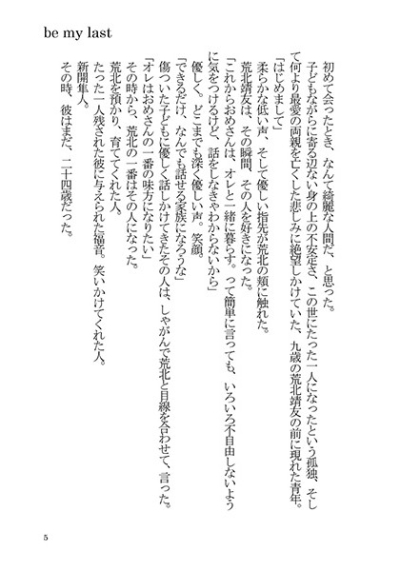 be my last
初めて会ったとき、なんて綺麗な人間だ、と思った。
子どもながらに寄る辺ない身の上の不安定さ、この世にたった一人になったという孤独、そし
て何より最愛の両親を亡くした悲しみに絶望しかけていた、九歳の荒北靖友の前に現れた青年。
「はじめまして」
柔らかな低い声、そして優しい指先が荒北の頬に触れた。
荒北靖友は、その瞬間、その人を好きになった。
「これからおめさんは、オレと一緒に暮らす。って簡単に言っても、いろいろ不自由しないよう
に気をつけるけど、話をしなきゃわからないから」
優しく。どこまでも深く優しい声。笑顔。
「できるだけ、なんでも話せる家族になろうな」
傷ついた子どもに優しく話しかけてきたその人は、しゃがんで荒北と目線を合わせて、言った。
「オレはおめさんの一番の味方になりたい」
その時から、荒北の一番はその人になった。
荒北を預かり、育ててくれた人。
たった一人残された彼に与えられた福音。笑いかけてくれた人。
新開隼人。
その時、彼はまだ、二十四歳だった。
5